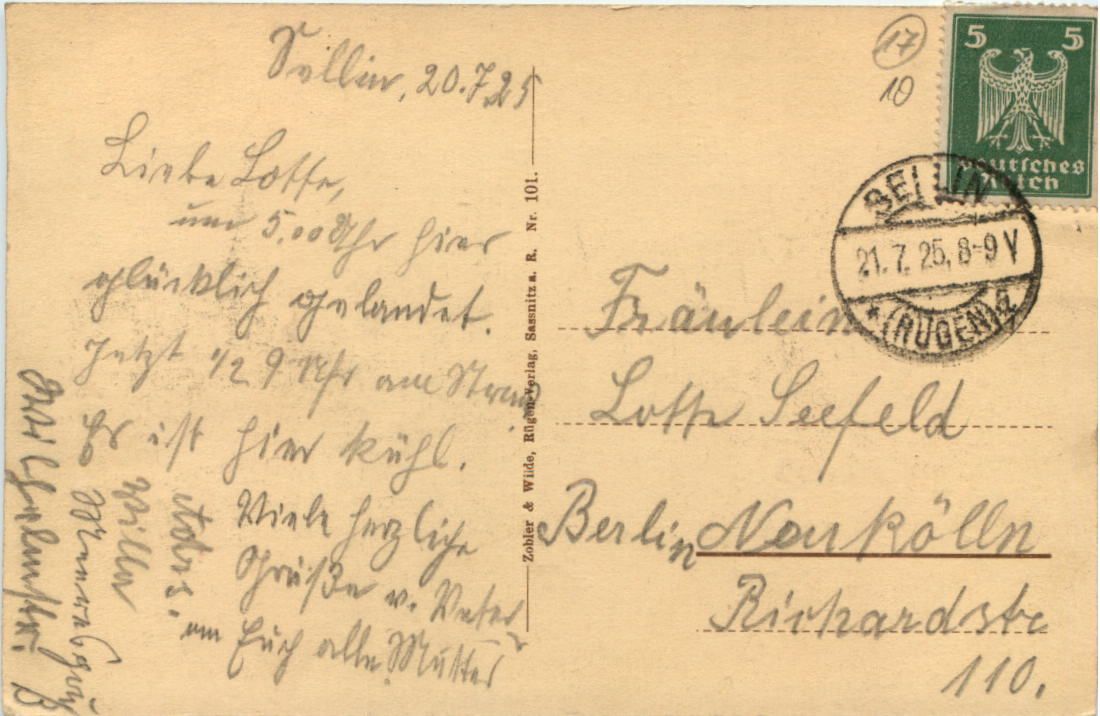 Sellin, 20.7.25
Liebe Lotte,
um 5.00 Uhr hier
glücklich gelandet.
Jetzt 1/2 9 Uhr am Strand
Es ist hier kühl.
Viele herzliche
Grüße v. Vater
an Euch alle. Mutter
Adr.
Villa
Wilhelmstr.
17
10
5 5
Deutsches
Reich
SELLIN
21.7.25. 8-9 V
* (RÜGEN) a
Zobler & Wilde, Rügen-Verlag, Sassnitz a. R. Nr. 101.
Fräulein
Lotte Seefeld
Berlin Neukölln
Richardstr
110.